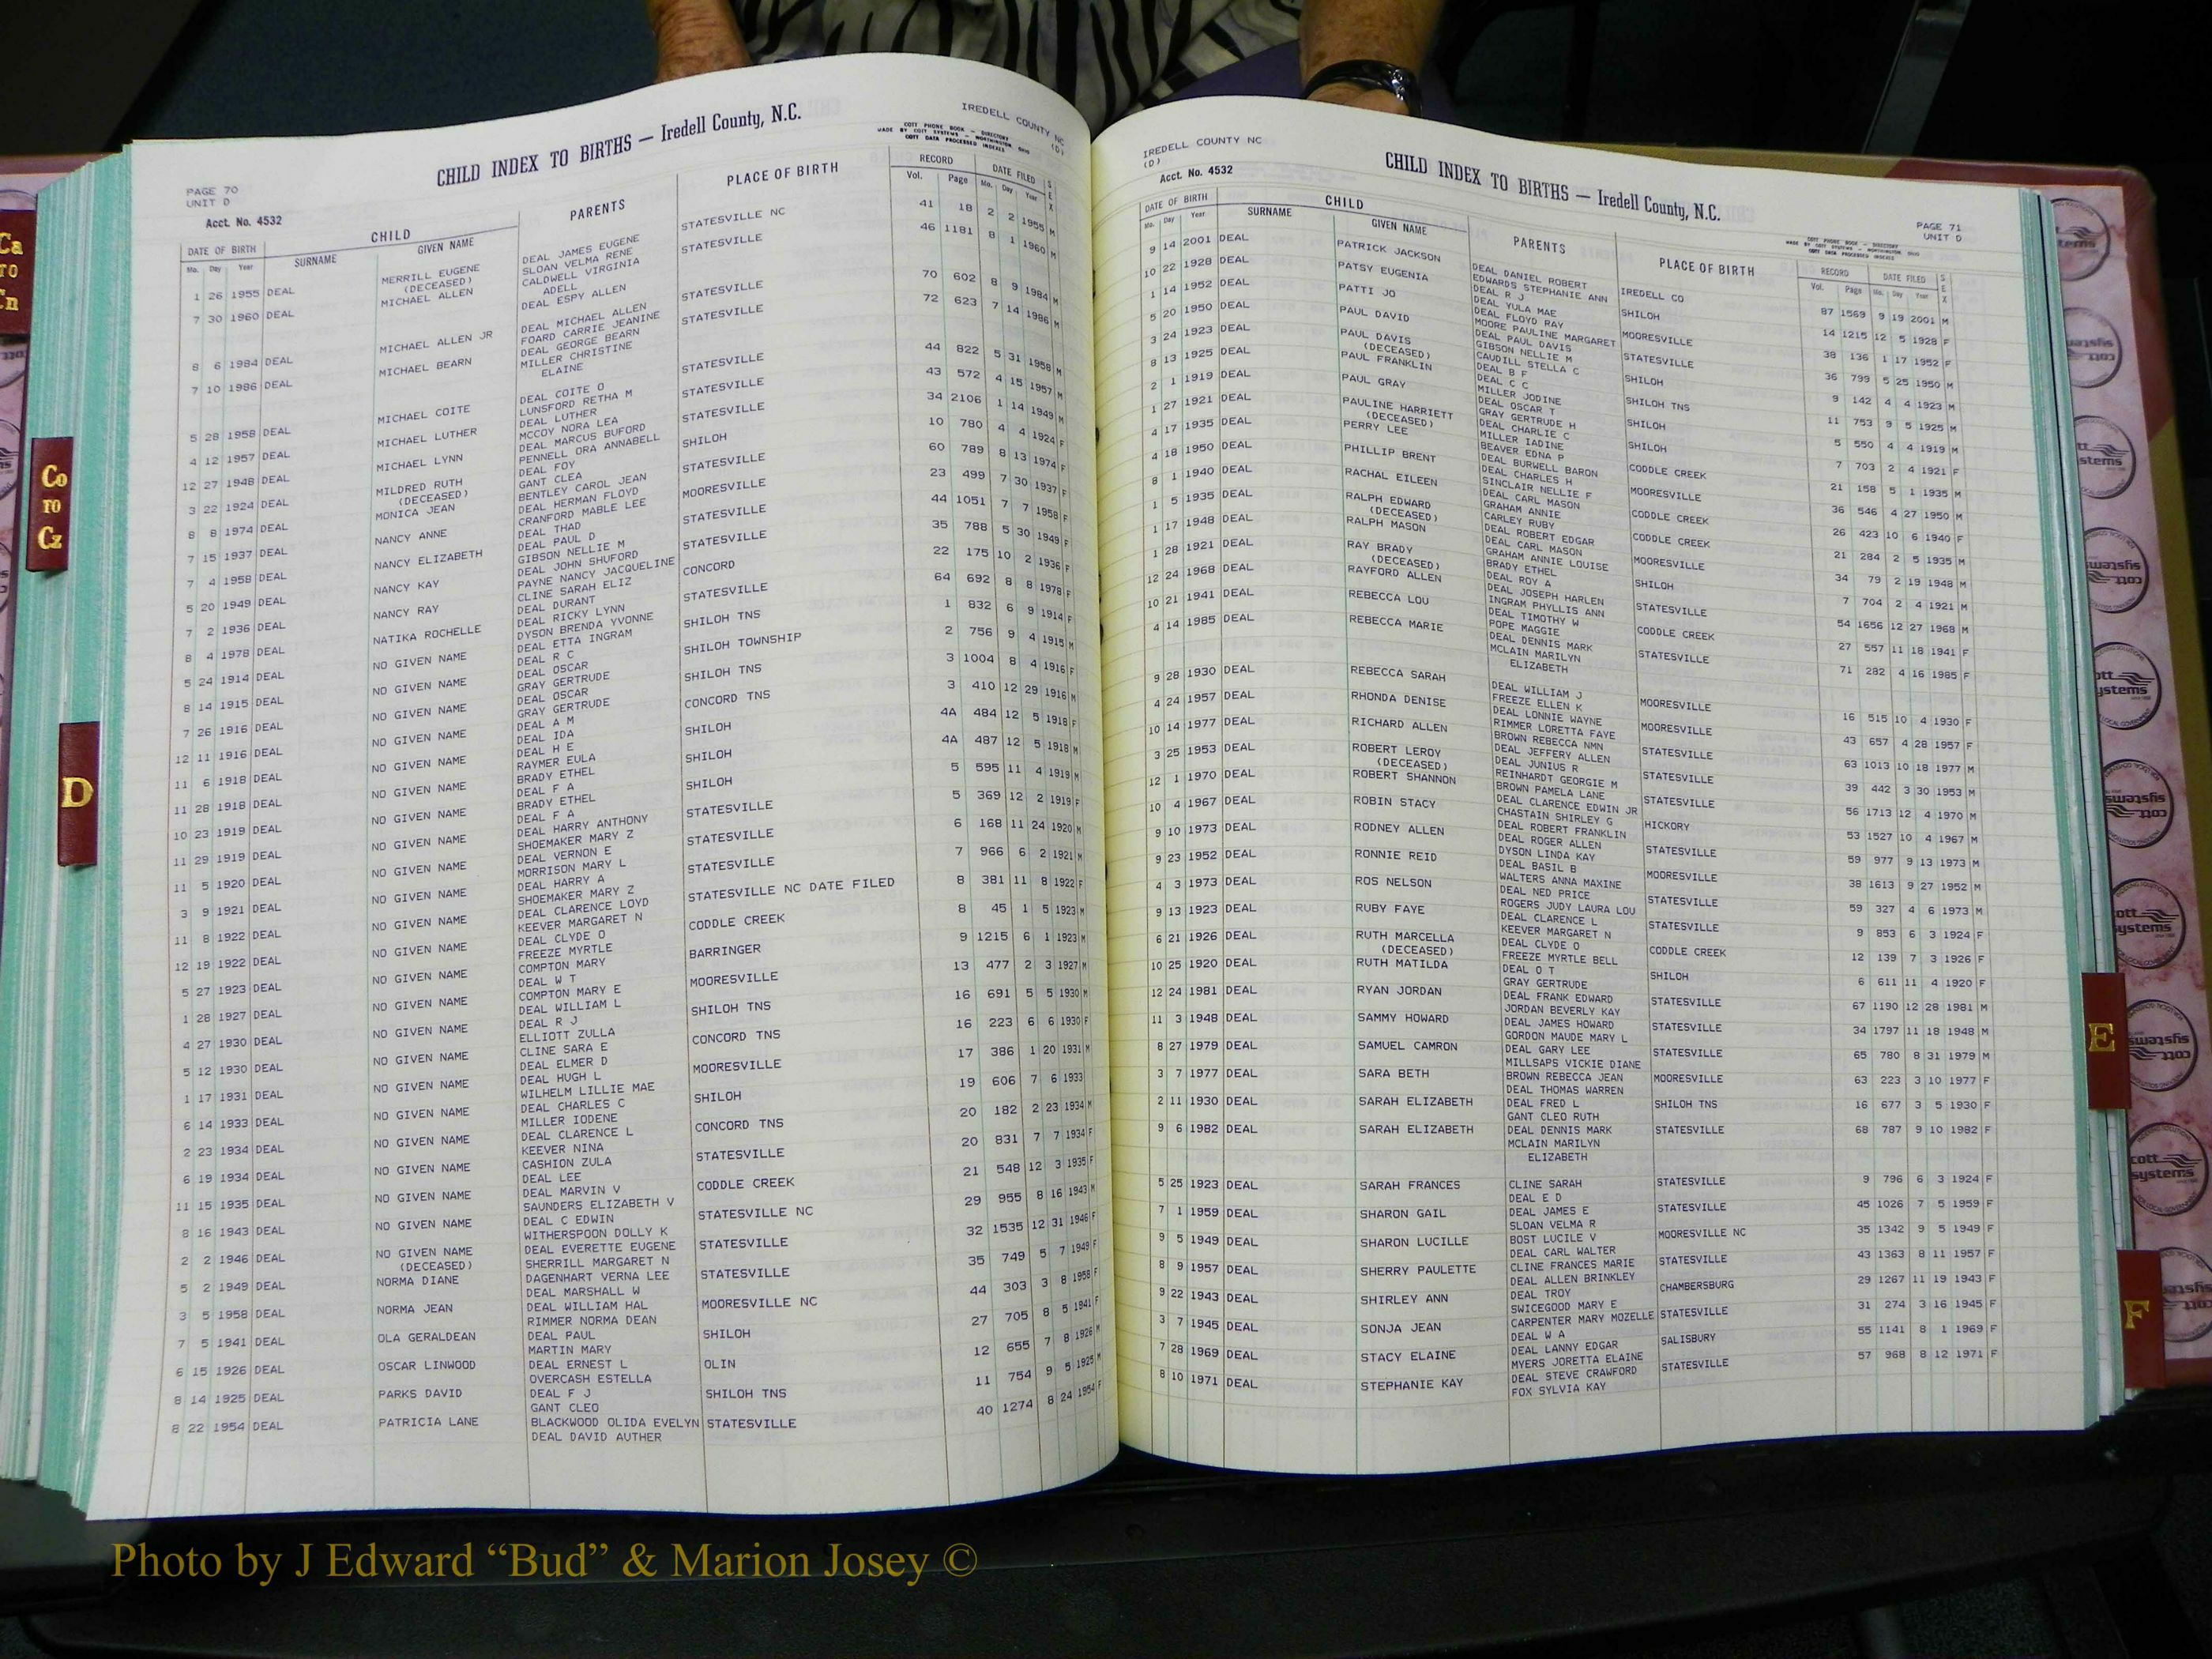 IREDELL COUNTY NC
(D)
COTT PHONE BOOK — DIRECTORY
MADE BY COTT SYSTEMS — WORTHINGTON, OHIO
COTT DATA PROCESSED INDEXES
CHILD INDEX TO BIRTHS — Iredell County, N.C.
PAGE 70
UNIT D
Acct. No. 4532
DATE OF BIRTH CHILD PARENTS PLACE OF BIRTH RECORD DATE FILED SEX
Mo. Day Year SURNAME GIVEN NAME Vol. Page Mo. Day Year
1 26 1955 DEAL MERRILL EUGENE DEAL JAMES EUGENE STATESVILLE NC 41 18 2 2 1955 M
(DECEASED) SLOAN VELMA RENE
7 30 1960 DEAL MICHAEL ALLEN CALDWELL VIRGINIA STATESVILLE 46 1181 8 1 1960 M
ADELL
DEAL ESPY ALLEN
8 6 1984 DEAL MICHAEL ALLEN JR DEAL MICHAEL ALLEN STATESVILLE 70 602 8 9 1984 M
FOARD CARRIE JEANINE
7 10 1986 DEAL MICHAEL BEARN DEAL GEORGE BEARN STATESVILLE 72 623 7 14 1986 M
MILLER CHRISTINE
ELAINE
5 28 1958 DEAL MICHAEL COITE DEAL COITE O STATESVILLE 44 822 5 31 1958 M
LUNSFORD RETHA M
4 12 1957 DEAL MICHAEL LUTHER DEAL LUTHER STATESVILLE 43 572 4 15 1957 M
MCCOY NORA LEA
12 27 1948 DEAL MICHAEL LYNN DEAL MARCUS BUFORD STATESVILLE 34 2106 1 14 1949 M
PENNELL ORA ANNABELL
3 22 1924 DEAL MILDRED RUTH DEAL FOY SHILOH 10 780 4 4 1924 F
(DECEASED) GANT CLEA
8 8 1974 DEAL MONICA JEAN BENTLEY CAROL JEAN STATESVILLE 60 789 8 13 1974 F
DEAL HERMAN FLOYD
7 15 1937 DEAL NANCY ANNE CRANFORD MABLE LEE MOORESVILLE 23 499 7 30 1937 F
DEAL THAD
7 4 1958 DEAL NANCY ELIZABETH DEAL PAUL D STATESVILLE 44 1051 7 7 1958 F
GIBSON NELLIE M
5 20 1949 DEAL NANCY KAY DEAL JOHN SHUFORD STATESVILLE 35 788 5 30 1949 F
PAYNE NANCY JACQUELINE
7 2 1936 DEAL NANCY RAY CLINE SARAH ELIZ CONCORD 22 175 10 2 1936 F
DEAL DURANT
8 4 1978 DEAL NATIKA ROCHELLE DEAL RICKY LYNN STATESVILLE 64 692 8 8 1978 F
DYSON BRENDA YVONNE
5 24 1914 DEAL NO GIVEN NAME DEAL ETTA INGRAM SHILOH TNS 1 832 6 9 1914 F
DEAL R C
8 14 1915 DEAL NO GIVEN NAME DEAL OSCAR SHILOH TOWNSHIP 2 756 9 4 1915 M
GRAY GERTRUDE
7 26 1916 DEAL NO GIVEN NAME DEAL OSCAR SHILOH TNS 3 1004 8 4 1916 F
GRAY GERTRUDE
12 11 1916 DEAL NO GIVEN NAME DEAL A M CONCORD TNS 3 410 12 29 1916 M
DEAL IDA
11 6 1918 DEAL NO GIVEN NAME DEAL H E SHILOH 4A 484 12 5 1918 F
RAYMER EULA
11 28 1918 DEAL NO GIVEN NAME BRADY ETHEL SHILOH 4A 487 12 5 1918 M
DEAL F A
10 23 1919 DEAL NO GIVEN NAME BRADY ETHEL SHILOH 5 595 11 4 1919 M
DEAL F A
11 29 1919 DEAL NO GIVEN NAME DEAL HARRY ANTHONY STATESVILLE 5 369 12 2 1919 F
SHOEMAKER MARY Z
11 5 1920 DEAL NO GIVEN NAME DEAL VERNON E STATESVILLE 6 168 11 24 1920 M
MORRISON MARY L
3 9 1921 DEAL NO GIVEN NAME DEAL HARRY A STATESVILLE 7 966 6 2 1921 M
SHOEMAKER MARY Z
11 8 1922 DEAL NO GIVEN NAME DEAL CLARENCE LOYD STATESVILLE NC DATE FILED 8 381 11 8 1922 F
KEEVER MARGARET N
12 19 1922 DEAL NO GIVEN NAME DEAL CLYDE O CODDLE CREEK 8 45 1 5 1923 M
FREEZE MYRTLE
5 27 1923 DEAL NO GIVEN NAME COMPTON MARY BARRINGER 9 1215 6 1 1923 M
DEAL W T
1 28 1927 DEAL NO GIVEN NAME COMPTON MARY E MOORESVILLE 13 477 2 3 1927 M
DEAL WILLIAM L
4 27 1930 DEAL NO GIVEN NAME DEAL R J SHILOH TNS 16 691 5 5 1930 M
ELLIOTT ZULLA
5 12 1930 DEAL NO GIVEN NAME CLINE SARA E CONCORD TNS 16 223 6 6 1930 F
DEAL ELMER D
1 17 1931 DEAL NO GIVEN NAME DEAL HUGH L MOORESVILLE 17 386 1 20 1931 M
WILHELM LILLIE MAE
6 14 1933 DEAL NO GIVEN NAME DEAL CHARLES C SHILOH 19 606 7 6 1933
MILLER IODENE
2 23 1934 DEAL NO GIVEN NAME DEAL CLARENCE L CONCORD TNS 20 182 2 23 1934 M
KEEVER NINA
6 19 1934 DEAL NO GIVEN NAME CASHION ZULA STATESVILLE 20 831 7 7 1934 F
DEAL LEE
11 15 1935 DEAL NO GIVEN NAME DEAL MARVIN V CODDLE CREEK 21 548 12 3 1935 F
SAUNDERS ELIZABETH V
8 16 1943 DEAL NO GIVEN NAME DEAL C EDWIN STATESVILLE NC 29 955 8 16 1943 M
WITHERSPOON DOLLY K
2 2 1946 DEAL NO GIVEN NAME DEAL EVERETTE EUGENE STATESVILLE 32 1535 12 31 1946 F
(DECEASED) SHERRILL MARGARET N
5 2 1949 DEAL NORMA DIANE DAGENHART VERNA LEE STATESVILLE 35 749 5 7 1949 F
DEAL MARSHALL W
3 5 1958 DEAL NORMA JEAN DEAL WILLIAM HAL MOORESVILLE NC 44 303 3 8 1958 F
RIMMER NORMA DEAN
7 5 1941 DEAL OLA GERALDEAN DEAL PAUL SHILOH 27 705 8 5 1941 F
MARTIN MARY
6 15 1926 DEAL OSCAR LINWOOD DEAL ERNEST L OLIN 12 655 7 8 1926 M
OVERCASH ESTELLA
8 14 1925 DEAL PARKS DAVID DEAL F J SHILOH TNS 11 754 9 5 1925 M
GANT CLEO
8 22 1954 DEAL PATRICIA LANE BLACKWOOD OLIDA EVELYN STATESVILLE 40 1274 8 24 1954 F
DEAL DAVID AUTHER
IREDELL COUNTY NC
(D)
Acct. No. 4532
CHILD INDEX TO BIRTHS — Iredell County, N.C.
PAGE 71
UNIT D
COTT PHONE BOOK — DIRECTORY
MADE BY COTT SYSTEMS — WORTHINGTON, OHIO
COTT DATA PROCESSED INDEXES
DATE OF BIRTH CHILD PARENTS PLACE OF BIRTH RECORD DATE FILED SEX
Mo. Day Year SURNAME GIVEN NAME Vol. Page Mo. Day Year
9 14 2001 DEAL PATRICK JACKSON DEAL DANIEL ROBERT IREDELL CO 87 1569 9 19 2001 M
EDWARDS STEPHANIE ANN
10 22 1928 DEAL PATSY EUGENIA DEAL R J SHILOH 14 1215 12 5 1928 F
DEAL YULA MAE
1 14 1952 DEAL PATTI JO DEAL FLOYD RAY MOORESVILLE 38 136 1 17 1952 F
MOORE PAULINE MARGARET
5 20 1950 DEAL PAUL DAVID DEAL PAUL DAVIS STATESVILLE 36 799 5 25 1950 M
GIBSON NELLIE M
3 24 1923 DEAL PAUL DAVIS CAUDILL STELLA C SHILOH 9 142 4 4 1923 M
(DECEASED) DEAL B F
8 13 1925 DEAL PAUL FRANKLIN DEAL C C SHILOH TNS 11 753 9 5 1925 M
MILLER JODINE
2 1 1919 DEAL PAUL GRAY DEAL OSCAR T SHILOH 5 550 4 4 1919 M
GRAY GERTRUDE H
1 27 1921 DEAL PAULINE HARRIETT DEAL CHARLIE C SHILOH 7 703 2 4 1921 F
(DECEASED) MILLER IADINE
4 17 1935 DEAL PERRY LEE BEAVER EDNA P CODDLE CREEK 21 158 5 1 1935 M
DEAL BURWELL BARON
4 18 1950 DEAL PHILLIP BRENT DEAL CHARLES H MOORESVILLE 36 546 4 27 1950 M
SINCLAIR NELLIE F
8 1 1940 DEAL RACHAL EILEEN DEAL CARL MASON CODDLE CREEK 26 423 10 6 1940 F
GRAHAM ANNIE
1 5 1935 DEAL RALPH EDWARD CARLEY RUBY CODDLE CREEK 21 284 2 5 1935 M
(DECEASED) DEAL ROBERT EDGAR
1 17 1948 DEAL RALPH MASON DEAL CARL MASON MOORESVILLE 34 79 2 19 1948 M
GRAHAM ANNIE LOUISE
1 28 1921 DEAL RAY BRADY BRADY ETHEL SHILOH 7 704 2 4 1921 M
(DECEASED) DEAL ROY A
12 24 1968 DEAL RAYFORD ALLEN DEAL JOSEPH HARLEN STATESVILLE 54 1656 12 27 1968 M
INGRAM PHYLLIS ANN
10 21 1941 DEAL REBECCA LOU DEAL TIMOTHY W CODDLE CREEK 27 557 11 18 1941 F
POPE MAGGIE
4 14 1985 DEAL REBECCA MARIE DEAL DENNIS MARK STATESVILLE 71 282 4 16 1985 F
MCLAIN MARILYN
ELIZABETH
9 28 1930 DEAL REBECCA SARAH DEAL WILLIAM J MOORESVILLE 16 515 10 4 1930 F
FREEZE ELLEN K
4 24 1957 DEAL RHONDA DENISE DEAL LONNIE WAYNE MOORESVILLE 43 657 4 28 1957 F
RIMMER LORETTA FAYE
10 14 1977 DEAL RICHARD ALLEN BROWN REBECCA NMN STATESVILLE 63 1013 10 18 1977 M
DEAL JEFFERY ALLEN
3 25 1953 DEAL ROBERT LEROY DEAL JUNIUS R STATESVILLE 39 442 3 30 1953 M
(DECEASED) REINHARDT GEORGIE M
12 1 1970 DEAL ROBERT SHANNON BROWN PAMELA LANE STATESVILLE 56 1713 12 4 1970 M
DEAL CLARENCE EDWIN JR
10 4 1967 DEAL ROBIN STACY CHASTAIN SHIRLEY G HICKORY 53 1527 10 4 1967 M
DEAL ROBERT FRANKLIN
9 10 1973 DEAL RODNEY ALLEN DEAL ROGER ALLEN STATESVILLE 59 977 9 13 1973 M
DYSON LINDA KAY
9 23 1952 DEAL RONNIE REID DEAL BASIL B MOORESVILLE 38 1613 9 27 1952 M
WALTERS ANNA MAXINE
4 3 1973 DEAL ROS NELSON DEAL NED PRICE STATESVILLE 59 327 4 6 1973 M
ROGERS JUDY LAURA LOU
9 13 1923 DEAL RUBY FAYE DEAL CLARENCE L STATESVILLE 9 853 6 3 1924 F
KEEVER MARGARET N
6 21 1926 DEAL RUTH MARCELLA DEAL CLYDE O CODDLE CREEK 12 139 7 3 1926 F
(DECEASED) FREEZE MYRTLE BELL
10 25 1920 DEAL RUTH MATILDA DEAL O T SHILOH 6 611 11 4 1920 F
GRAY GERTRUDE
12 24 1981 DEAL RYAN JORDAN DEAL FRANK EDWARD STATESVILLE 67 1190 12 28 1981 M
JORDAN BEVERLY KAY
11 3 1948 DEAL SAMMY HOWARD DEAL JAMES HOWARD STATESVILLE 34 1797 11 18 1948 M
GORDON MAUDE MARY L
8 27 1979 DEAL SAMUEL CAMRON DEAL GARY LEE STATESVILLE 65 780 8 31 1979 M
MILLSAPS VICKIE DIANE
3 7 1977 DEAL SARA BETH BROWN REBECCA JEAN MOORESVILLE 63 223 3 10 1977 F
DEAL THOMAS WARREN
2 11 1930 DEAL SARAH ELIZABETH DEAL FRED L SHILOH TNS 16 677 3 5 1930 F
GANT CLEO RUTH
9 6 1982 DEAL SARAH ELIZABETH DEAL DENNIS MARK STATESVILLE 68 787 9 10 1982 F
MCLAIN MARILYN
ELIZABETH
5 25 1923 DEAL SARAH FRANCES CLINE SARAH STATESVILLE 9 796 6 3 1924 F
DEAL E D
7 1 1959 DEAL SHARON GAIL DEAL JAMES E STATESVILLE 45 1026 7 5 1959 F
SLOAN VELMA R
9 5 1949 DEAL SHARON LUCILLE BOST LUCILE V MOORESVILLE NC 35 1342 9 5 1949 F
DEAL CARL WALTER
8 9 1957 DEAL SHERRY PAULETTE CLINE FRANCES MARIE STATESVILLE 43 1363 8 11 1957 F
DEAL ALLEN BRINKLEY
9 22 1943 DEAL SHIRLEY ANN DEAL TROY CHAMBERSBURG 29 1267 11 19 1943 F
SWICEGOOD MARY E
3 7 1945 DEAL SONJA JEAN CARPENTER MARY MOZELLE STATESVILLE 31 274 3 16 1945 F
DEAL W A
7 28 1969 DEAL STACY ELAINE DEAL LANNY EDGAR SALISBURY 55 1141 8 1 1969 F
MYERS JORETTA ELAINE
8 10 1971 DEAL STEPHANIE KAY DEAL STEVE CRAWFORD STATESVILLE 57 968 8 12 1971 F
FOX SYLVIA KAY
Ca
TO
Cn
Co
TO
Cz
D
E
F
cott systems
Photo by J Edward “Bud” & Marion Josey ©